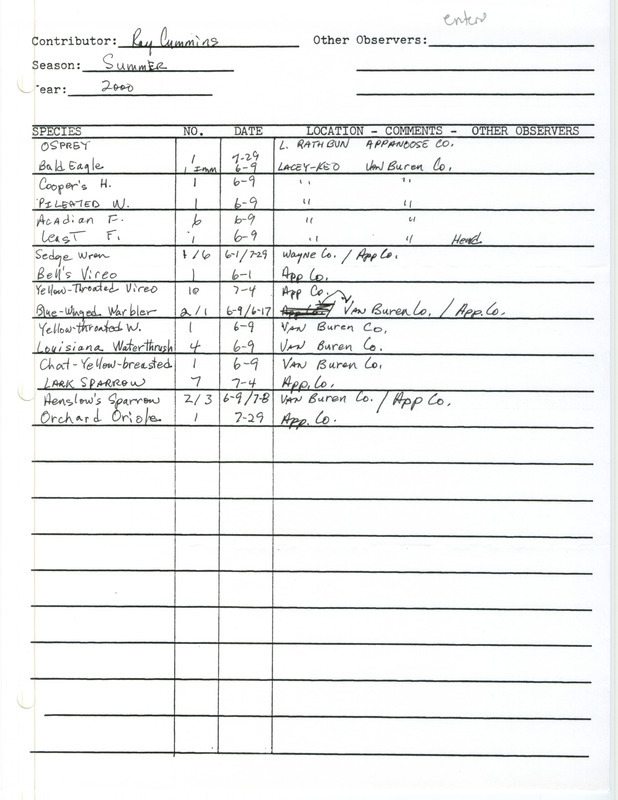 enter
Contributor: Ray Cummins Other Observers:
Season: Summer
Year: 2000
SPECIES NO. DATE LOCATION - COMMENTS - OTHER OBSERVERS
OSPREY 1 7-29 L. RATHBUN APPANOOSE CO.
Bald Eagle 1 Imm 6-9 LACEY-KEO Van Buren Co.
Cooper's H. 1 6-9 " "
PILEATED W. 1 6-9 " "
Acadian F. 6 6-9 " "
Least F. 1 6-9 " " Head
Sedge Wren 1/6 6-1/7-29 Wayne Co. / App Co.
Bell's Vireo 1 6-1 App Co.
Yellow-Throated Vireo 10 7-4 App Co.
Blue-Winged Warbler 2/1 6-9/6-17 App Co. Van Buren Co. / App. Co.
Yellow-throated W. 1 6-9 Van Buren Co.
Louisiana Waterthrush 4 6-9 Van Buren Co.
Chat-Yellow-breasted 1 6-9 Van Buren Co.
LARK SPARROW 7 7-4 App. Co.
Henslow's Sparrow 2/3 6-9/7-8 Van Buren Co. / App Co.
Orchard Oriole 1 7-29 App. Co.